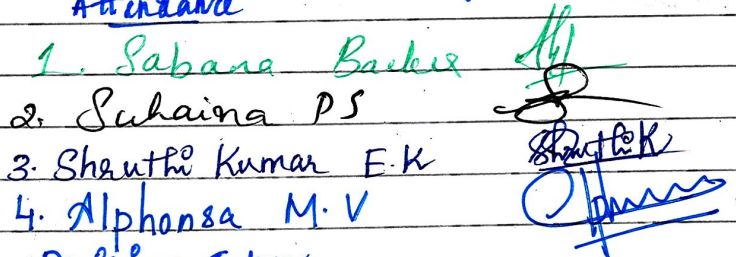 Attendance
1. Sabana Backer
2. Suhaina PS
3. Shruthi Kumar E.K Shruthi K
4. Alphonsa M.V